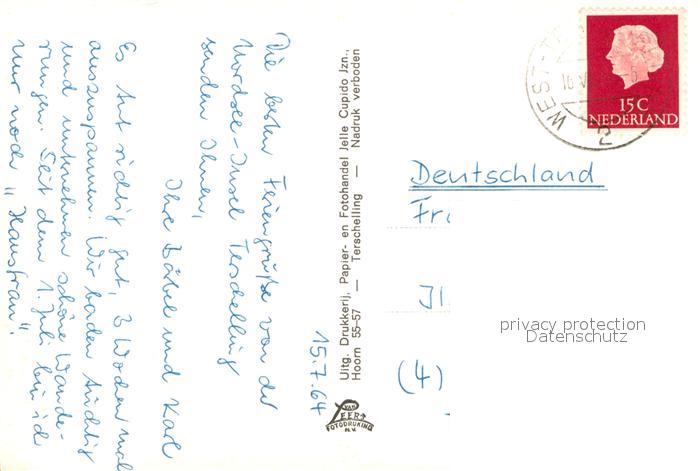 15.7.64
Die besten Feriengrüße von der
Nordsee-Insel Terschelling
senden Ihnen,
Ihre Bärbel und Karl
Es tut richtig gut, 3 Wochen mal
auszuspannen. Wir baden tüchtig
und unternehmen schöne Wande-
rungen. Seit dem 1. Juli bin ich
nur noch "Hausfrau".
Uitg. Drukkerij, Papier- en Fotohandel Jelle Cupido Jzn.,
Hoorn 55-57 — Terschelling — Nadruk verboden
VAN LEER'S
FOTODRUKIND.
N.V.
WEST-T
15 C
NEDERLAND
Deutschland
Fr
(4)
privacy protection
Datenschutz